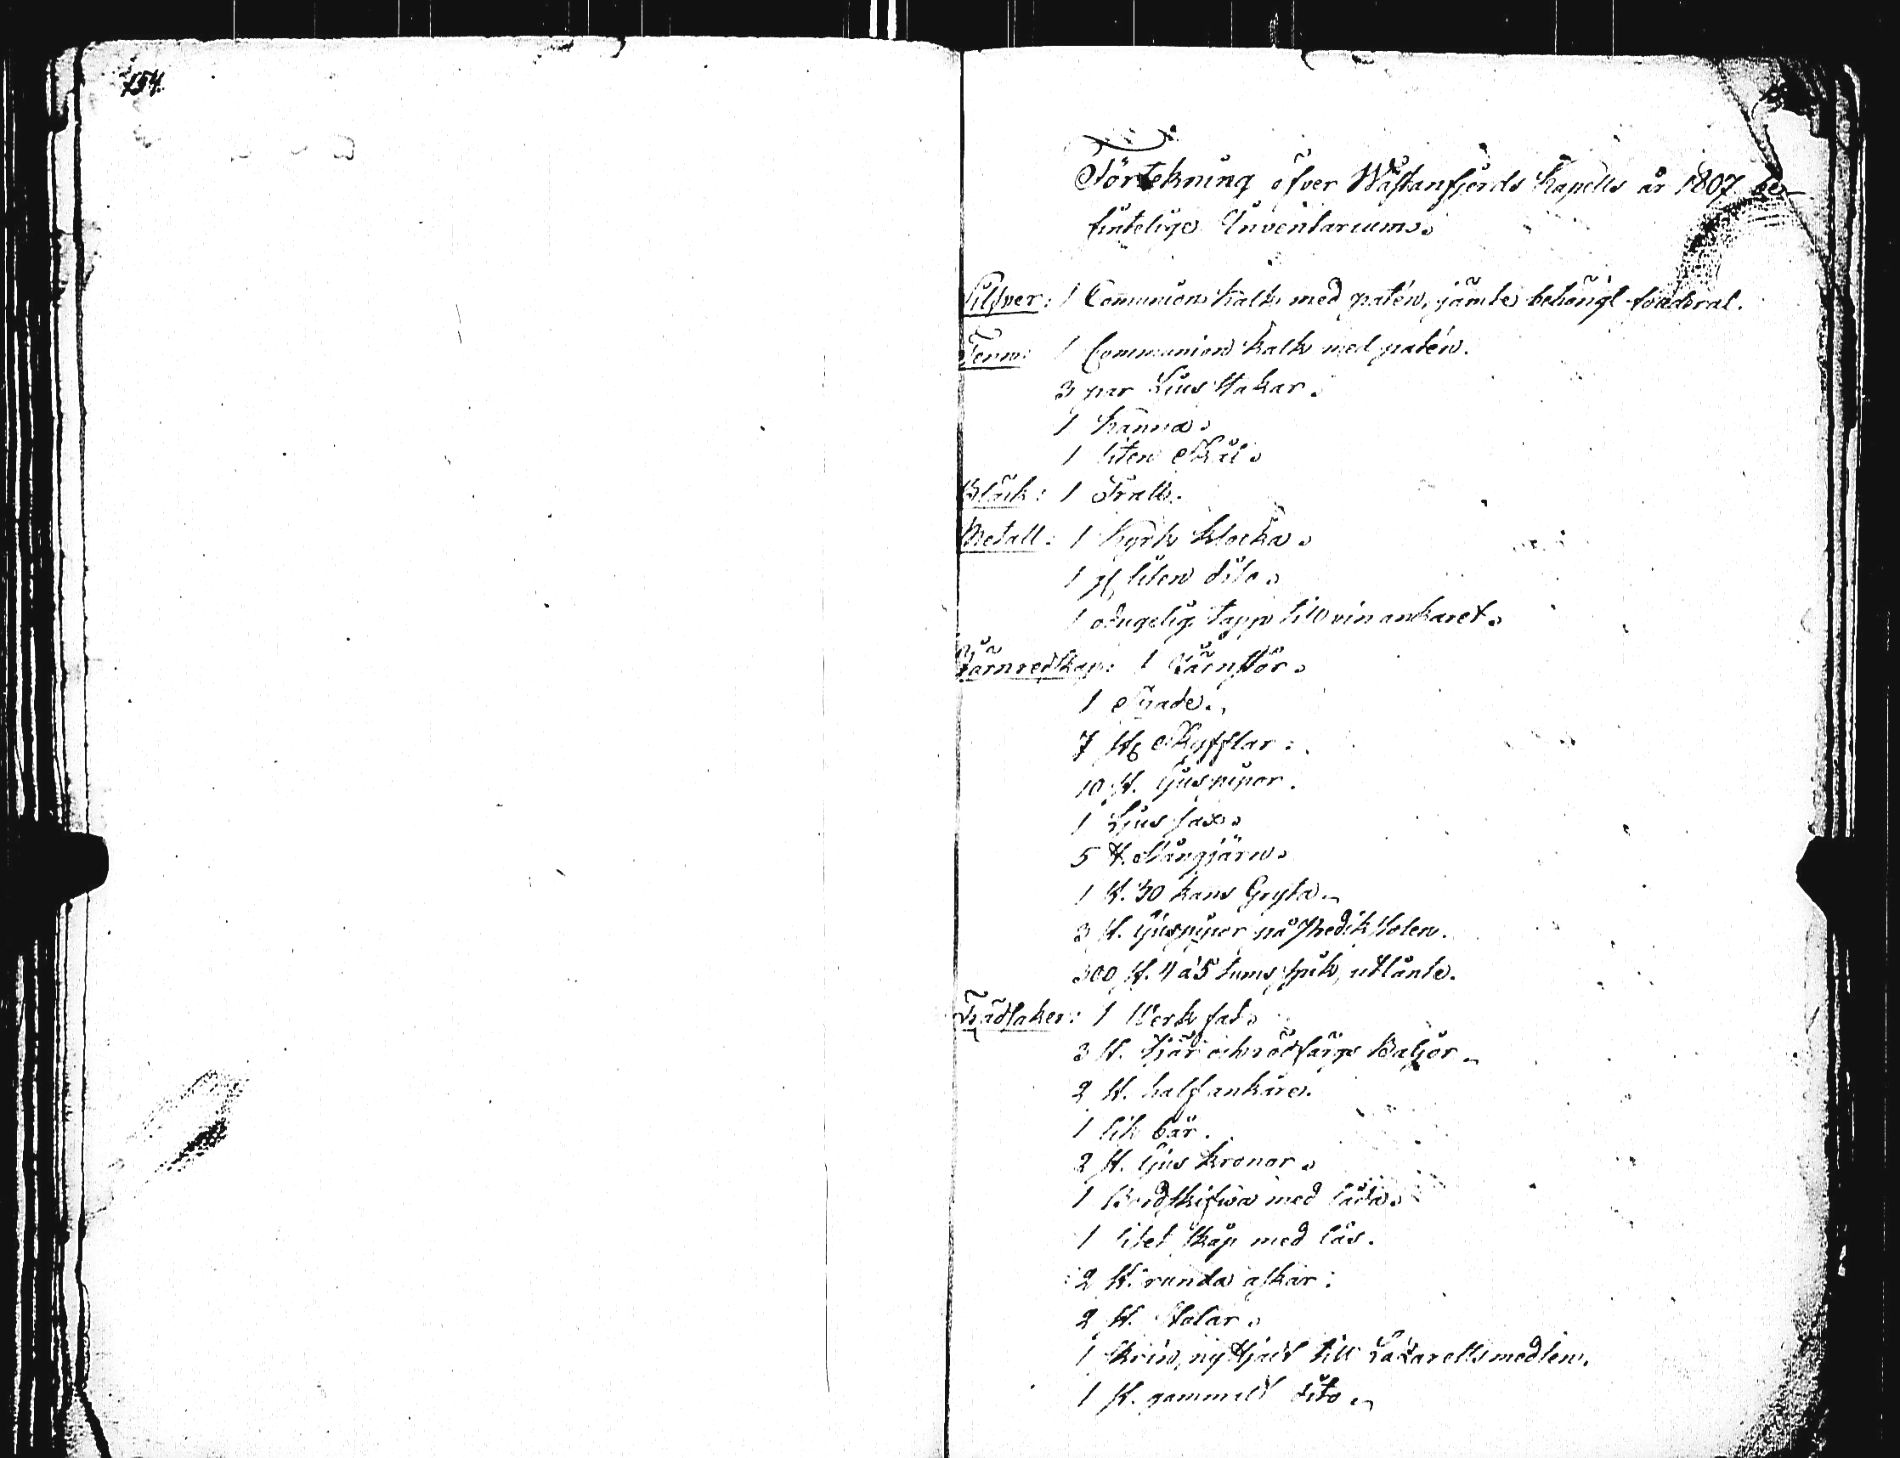 154.
Förtekning öfver Wästanfjerds Kapells år 1807 be-
fintelige Inventarium.
Silfver: 1 Communion kalk med patén, jämte behörigt foderal.
Tenn: 1 Communion kalk med patén.
3 par Ljus stakar.
1 kanna.
1 liten Skål.
Bläck: 1 Tratt.
Metall: 1 kyrk klocka.
1 st. liten dito.
1 odugelig tapp till vin ankaret.
Järnredskap: 1 Järnstör.
1 Spade.
7 st. Skyfflar.
10 st. ljuspipor.
1 Ljus sax.
5 st. Stångjärn.
1 st. 30 kans Gryta.
3 st. ljuspipor på Predikstolen.
300 st. 4 a 5 tums spik, utlånte.
Trädsaker: 1 Verk fat.
3 st. Tjär och rödfärgs Baljor.
2 st. half ankare.
1 lik bår.
2 st. ljus kronor.
1 Bordskifwa med låda.
1 litet skåp med lås.
2 st. runda askar.
2 st. Stolar.
1 Skrin, nyttjadt till Lazarettsmedlen.
1 st. gammalt dito.